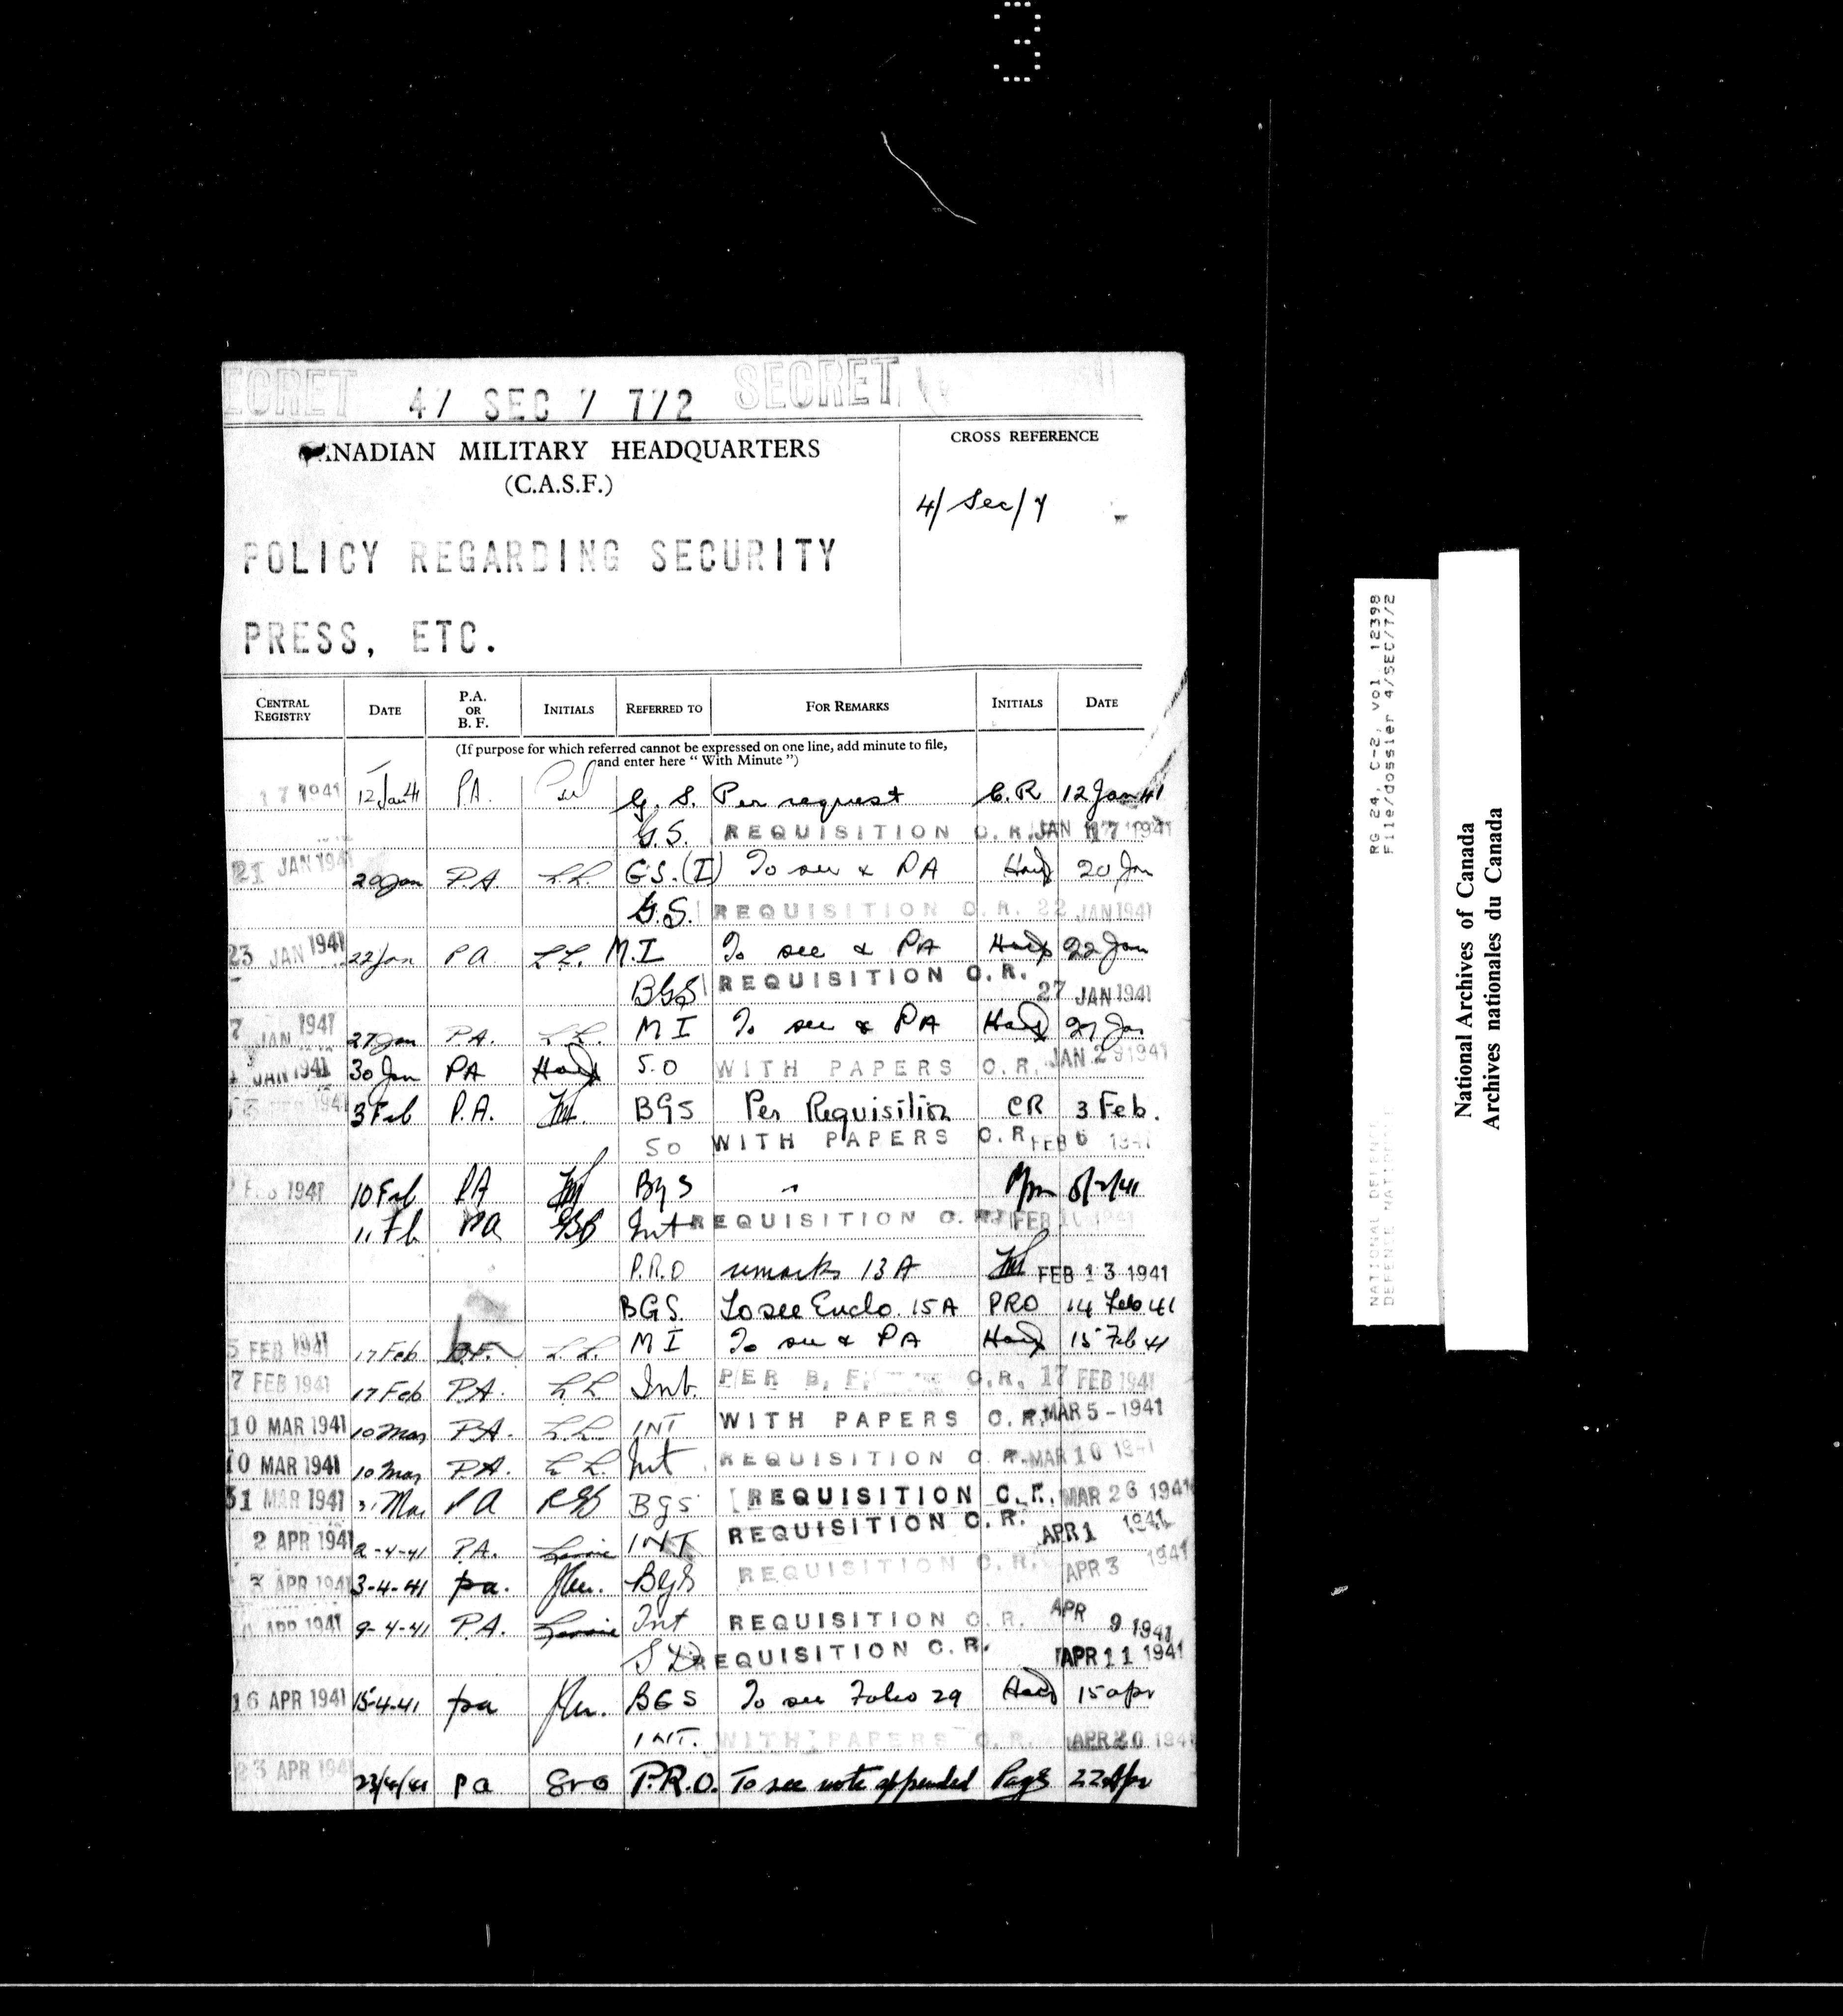 3
SECRET
4/ SEC / 7/2
CANADIAN MILITARY HEADQUARTERS
(C.A.S.F.)
CROSS REFERENCE
4/ Sec/ 7
POLICY REGARDING SECURITY
PRESS, ETC.
CENTRAL REGISTRY DATE P.A. OR B. F. INITIALS REFERRED TO FOR REMARKS INITIALS DATE
(If purpose for which referred cannot be expressed on one line, add minute to file,
and enter here " With Minute ")
17 1941 12 Jan 41 P.A. G. S. Per request C.R 12 Jan 41
G.S. REQUISITION C.R. JAN 17 1941
21 JAN 1941 20 Jan P.A L.L. G.S.(I) To see & PA 20 Jan
G.S. REQUISITION C.R. 22 JAN 1941
23 JAN 1941 22 Jan PA L.L. M.I To see & PA 22 Jan
BGS REQUISITION C.R. 27 JAN 1941
7 JAN 1941 27 Jan P.A. L.L. M I To see & PA 27 Jan
JAN 1941 30 Jan PA S.O WITH PAPERS C.R. JAN 29 1941
1941 3 Feb P.A. BGS Per Requisition CR 3 Feb.
SO WITH PAPERS C.R FEB 6 1941
FEB 1941 10 Feb PA BGS " 8/2/41
11 Fb PA Int REQUISITION C.R. FEB 10 1941
P.R.O remarks 13A FEB 13 1941
BGS. To see Enclo. 15A PRO 14 Feb 41
5 FEB 1941 17 Feb B.F. L.L. M I To see & PA 15 Feb 41
7 FEB 1941 17 Feb P.A. L.L Int. PER B. F. C.R. 17 FEB 1941
10 MAR 1941 10 Mar P.A. L.L. INT WITH PAPERS C.R. MAR 5 - 1941
10 MAR 1941 10 Mar P.A. L.L. Int REQUISITION C.R. MAR 10 1941
31 MAR 1941 31 Mar PA BGS REQUISITION C.R. MAR 26 1941
2 APR 1941 2-4-41 P.A. INT REQUISITION C.R. APR 1 1941
3 APR 1941 3-4-41 pa. BGS REQUISITION C.R. APR 3 1941
APR 1941 9-4-41 P.A. Int REQUISITION C.R. APR 9 1941
S D REQUISITION C.R. APR 11 1941
16 APR 1941 15-4-41 pa BGS To see Folio 29 15 apr
INT. WITH PAPERS C.R. APR 20 1941
23 APR 1941 23/4/41 pa P.R.O. To see note appended 22 Apr
RG 24, C-2, vol. 12398
File/dossier 4/SEC/7/2
NATIONAL DEFENCE
DEFENSE NATIONALE
National Archives of Canada
Archives nationales du Canada